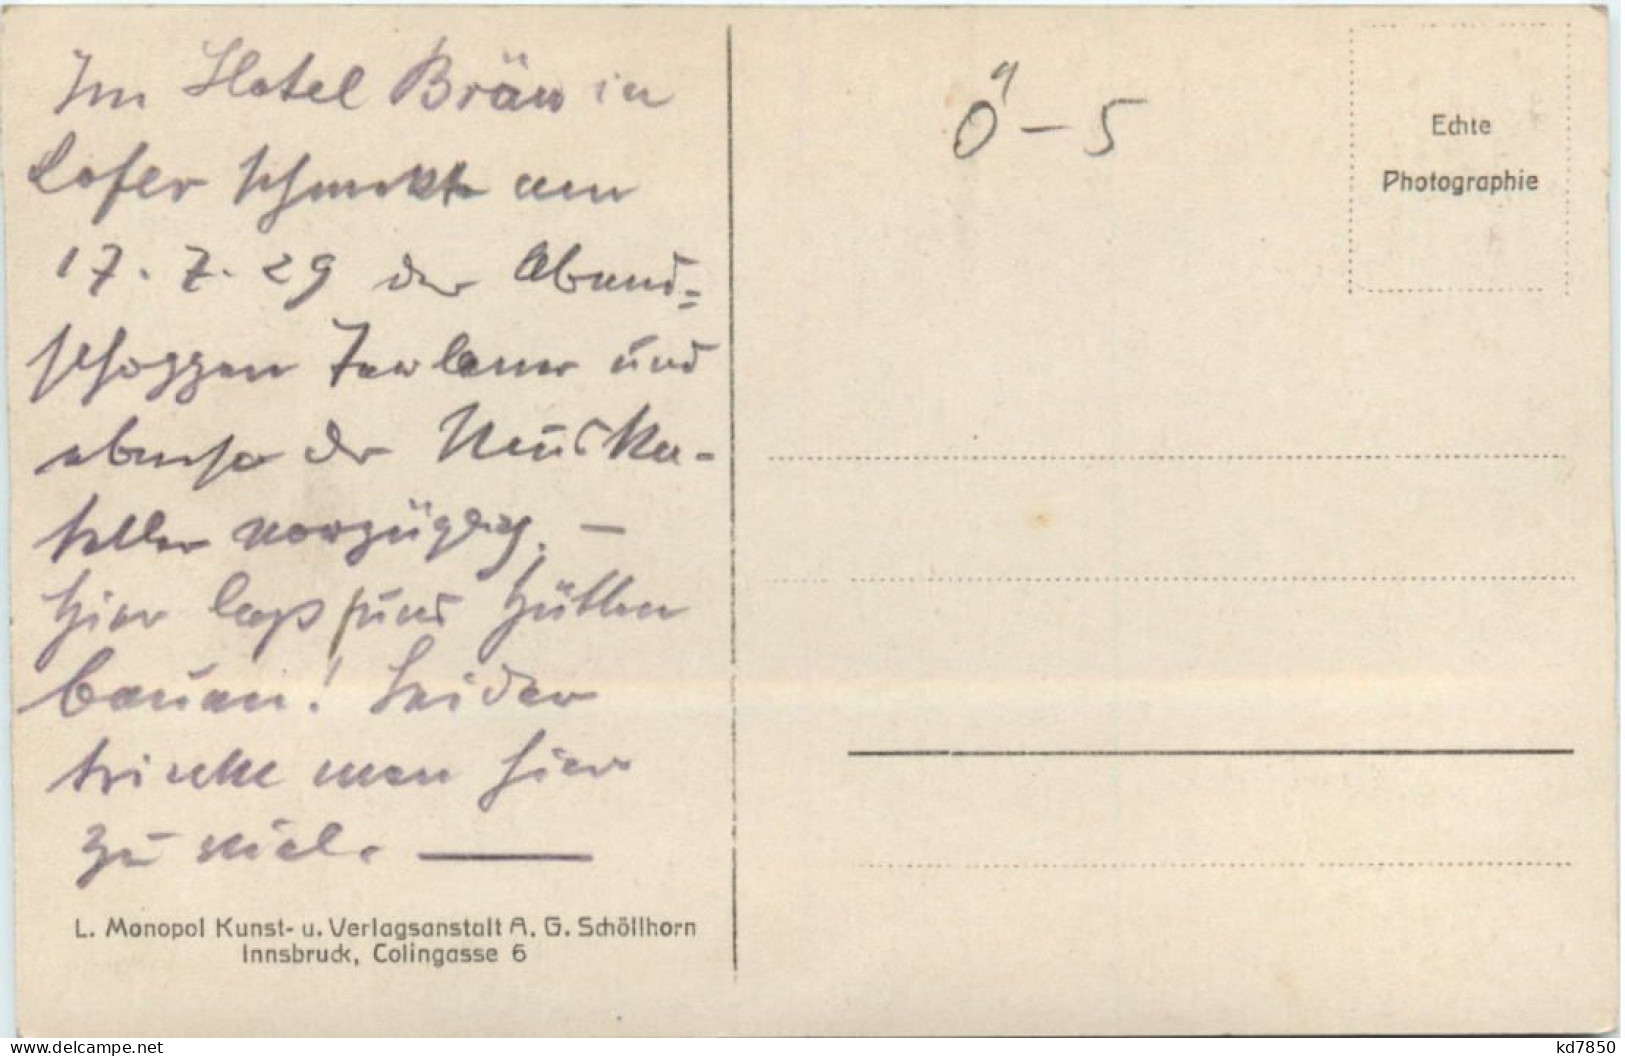 Im Hotel Bräu in
Lofer schmeckte am
17. 7. 29 der Abend-
schoppen Terlaner und
ebenso der Muska-
teller vorzüglich. —
Hier lasst uns Hütten
bauen! Leider
trinkt man hier
zu viel. —
L. Monopol Kunst- u. Verlagsanstalt A. G. Schöllhorn
Innsbruck, Colingasse 6
Ö - 5
Echte
Photographie
www.delcampe.net
kd7850